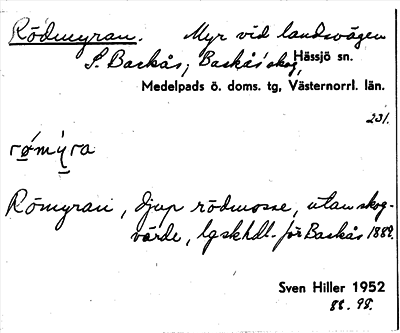 Rödmyran. Myr vid landsvägen
S. Baskås; Baskås skog, Hässjö sn.
Medelpads ö. doms. tg, Västernorrl. län.
231.
rǿmỳra
Römyran, djup rödmosse, utan skog-
värde, lgskhdl. för Baskås 1882.
Sven Hiller 1952
88. 98.